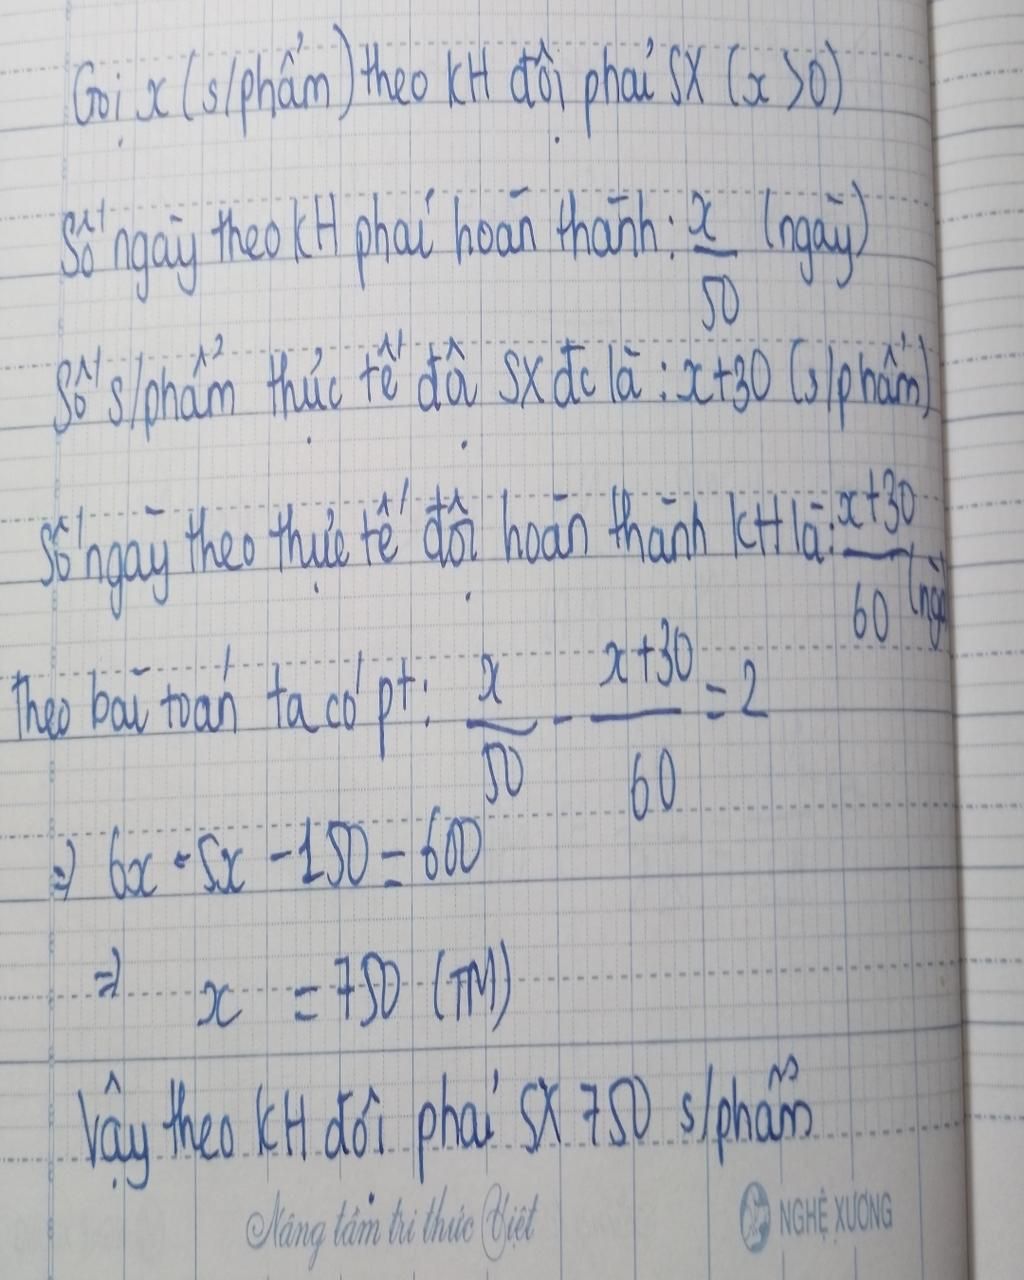 Gọi x (s/phẩm) theo KH đội phải SX (x > 0)
Số ngày theo KH phải hoàn thành: x/50 (ngày)
Số s/phẩm thực tế đội SX đc là: x+30 (s/phẩm)
Số ngày theo thực tế đội hoàn thành KH là: x+30/60 (ngà
Theo bài toán ta có pt: x/50 - x+30/60 = 2
=> 6x - 5x - 150 = 600
=> x = 750 (TM)
Vậy theo KH đội phải SX 750 s/phẩm
Nâng tầm tri thức Việt
NGHỆ XƯƠNG